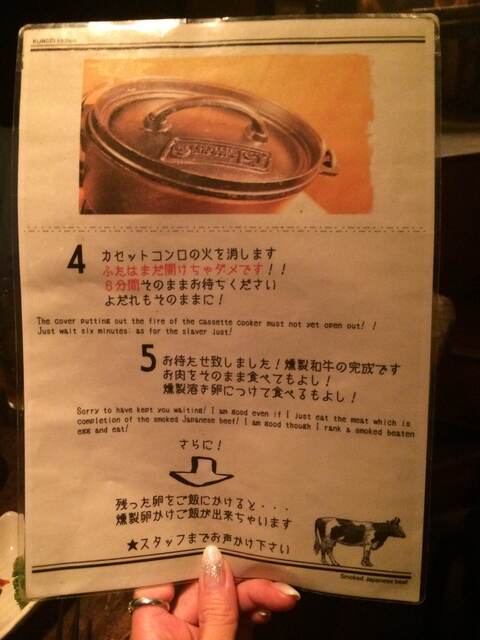 4
カセットコンロの火を消します
ふたはまだ開けちゃダメです！！
6分間そのままお待ちください
よだれもそのままに！
The cover putting out the fire of the cassette cooker must not yet open out! !
Just wait six minutes; as for the slaver Just!
5
お待たせ致しました！燻製和牛の完成です
お肉をそのまま食べてもよし！
燻製溶き卵につけて食べるもよし！
Sorry to have kept you waiting! I am good even if I just eat the meat which is
completion of the smoked Japanese beef! I am good though I rank a smoked beaten
egg and eat!
さらに！
残った卵をご飯にかけると・・・
燻製卵かけご飯が出来ちゃいます
★スタッフまでお声かけ下さい
Smoked Japanese beef